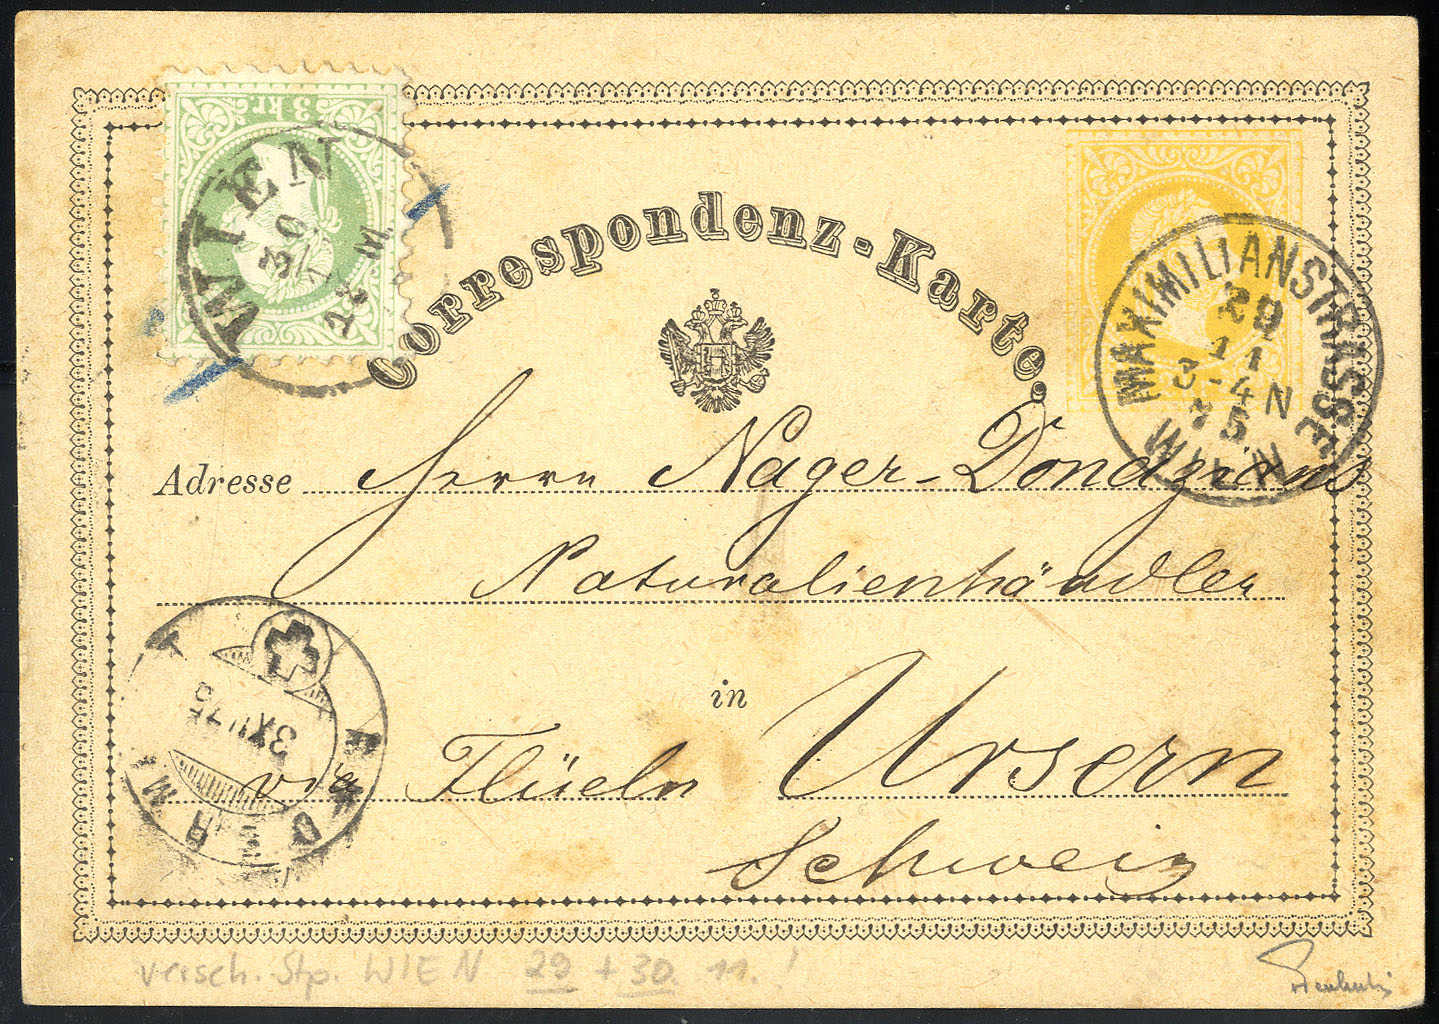 3 kr
WIEN
30
11
2 M.
Correspondenz-Karte.
MAXIMILIANSTRASSE
29
11
3-4 N
75
WIEN
Adresse Herrn Nager-Donazians
Naturalienhändler
in Ursern
via Flüeln
Schweiz
ANDERMATT
3 XII 75
versch. Stp. WIEN 29 + 30. 11. !